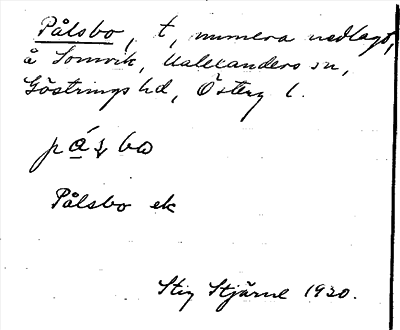 Pålsbo, t, numera nedlagt,
å Somvik, Ualexanders sn,
Göstrings hd, Österg l.
på
Pålsbo ek
Stig Stjärne 1930.